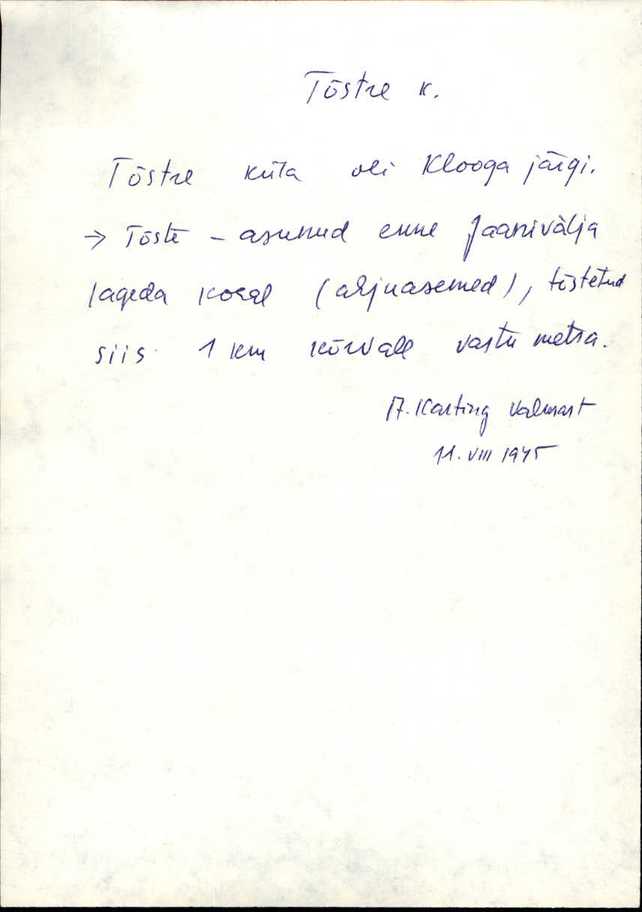 Tõstre k.
Tõstre küla oli Klooga järgi.
→ Tõste – asunud enne Jaanivälja
lageda kohal (ahjuasemed), tõstetud
siis 1 km kõrvale vastu metsa.
A. Kasting Valmast
11. VIII 1975